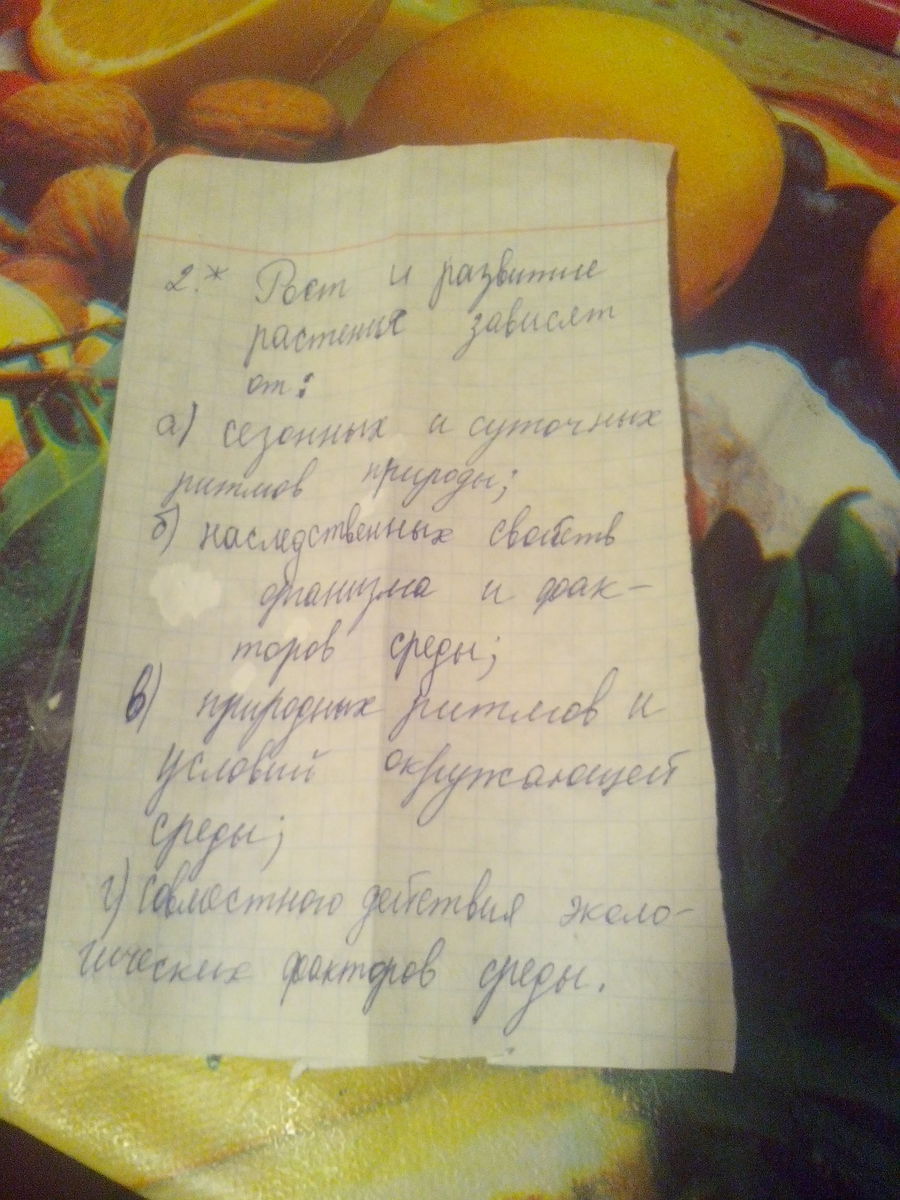 2.* Рост и развитие
растения зависят
от:
а) сезонных и суточных
ритмов природы;
б) наследственных свойств
организма и фак-
торов среды;
в) природных ритмов и
условий окружающей
среды;
г) совместного действия эколо-
гических факторов среды.